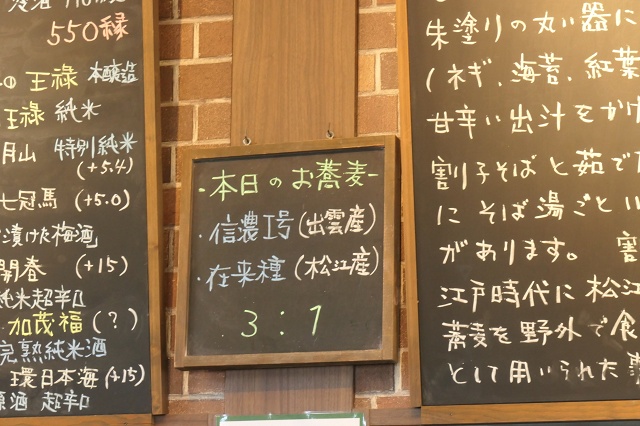 550縁
の 王禄 本醸造
王禄 純米
月山 特別純米
(+5.4)
七冠馬 (+5.0)
漬けた梅酒
開春 (+15)
純米超辛口
加茂福 (?)
完熟純米酒
環日本海 (+15)
原酒 超辛口
-本日のお蕎麦-
・信濃1号 (出雲産)
・在来種 (松江産)
3:1
朱塗りの丸い器に
(ネギ、海苔、紅葉
甘辛い出汁をかけ
割子そばと茹で
にそば湯ごと
があります。 割
江戸時代に松江
蕎麦を野外で食
として用いられた